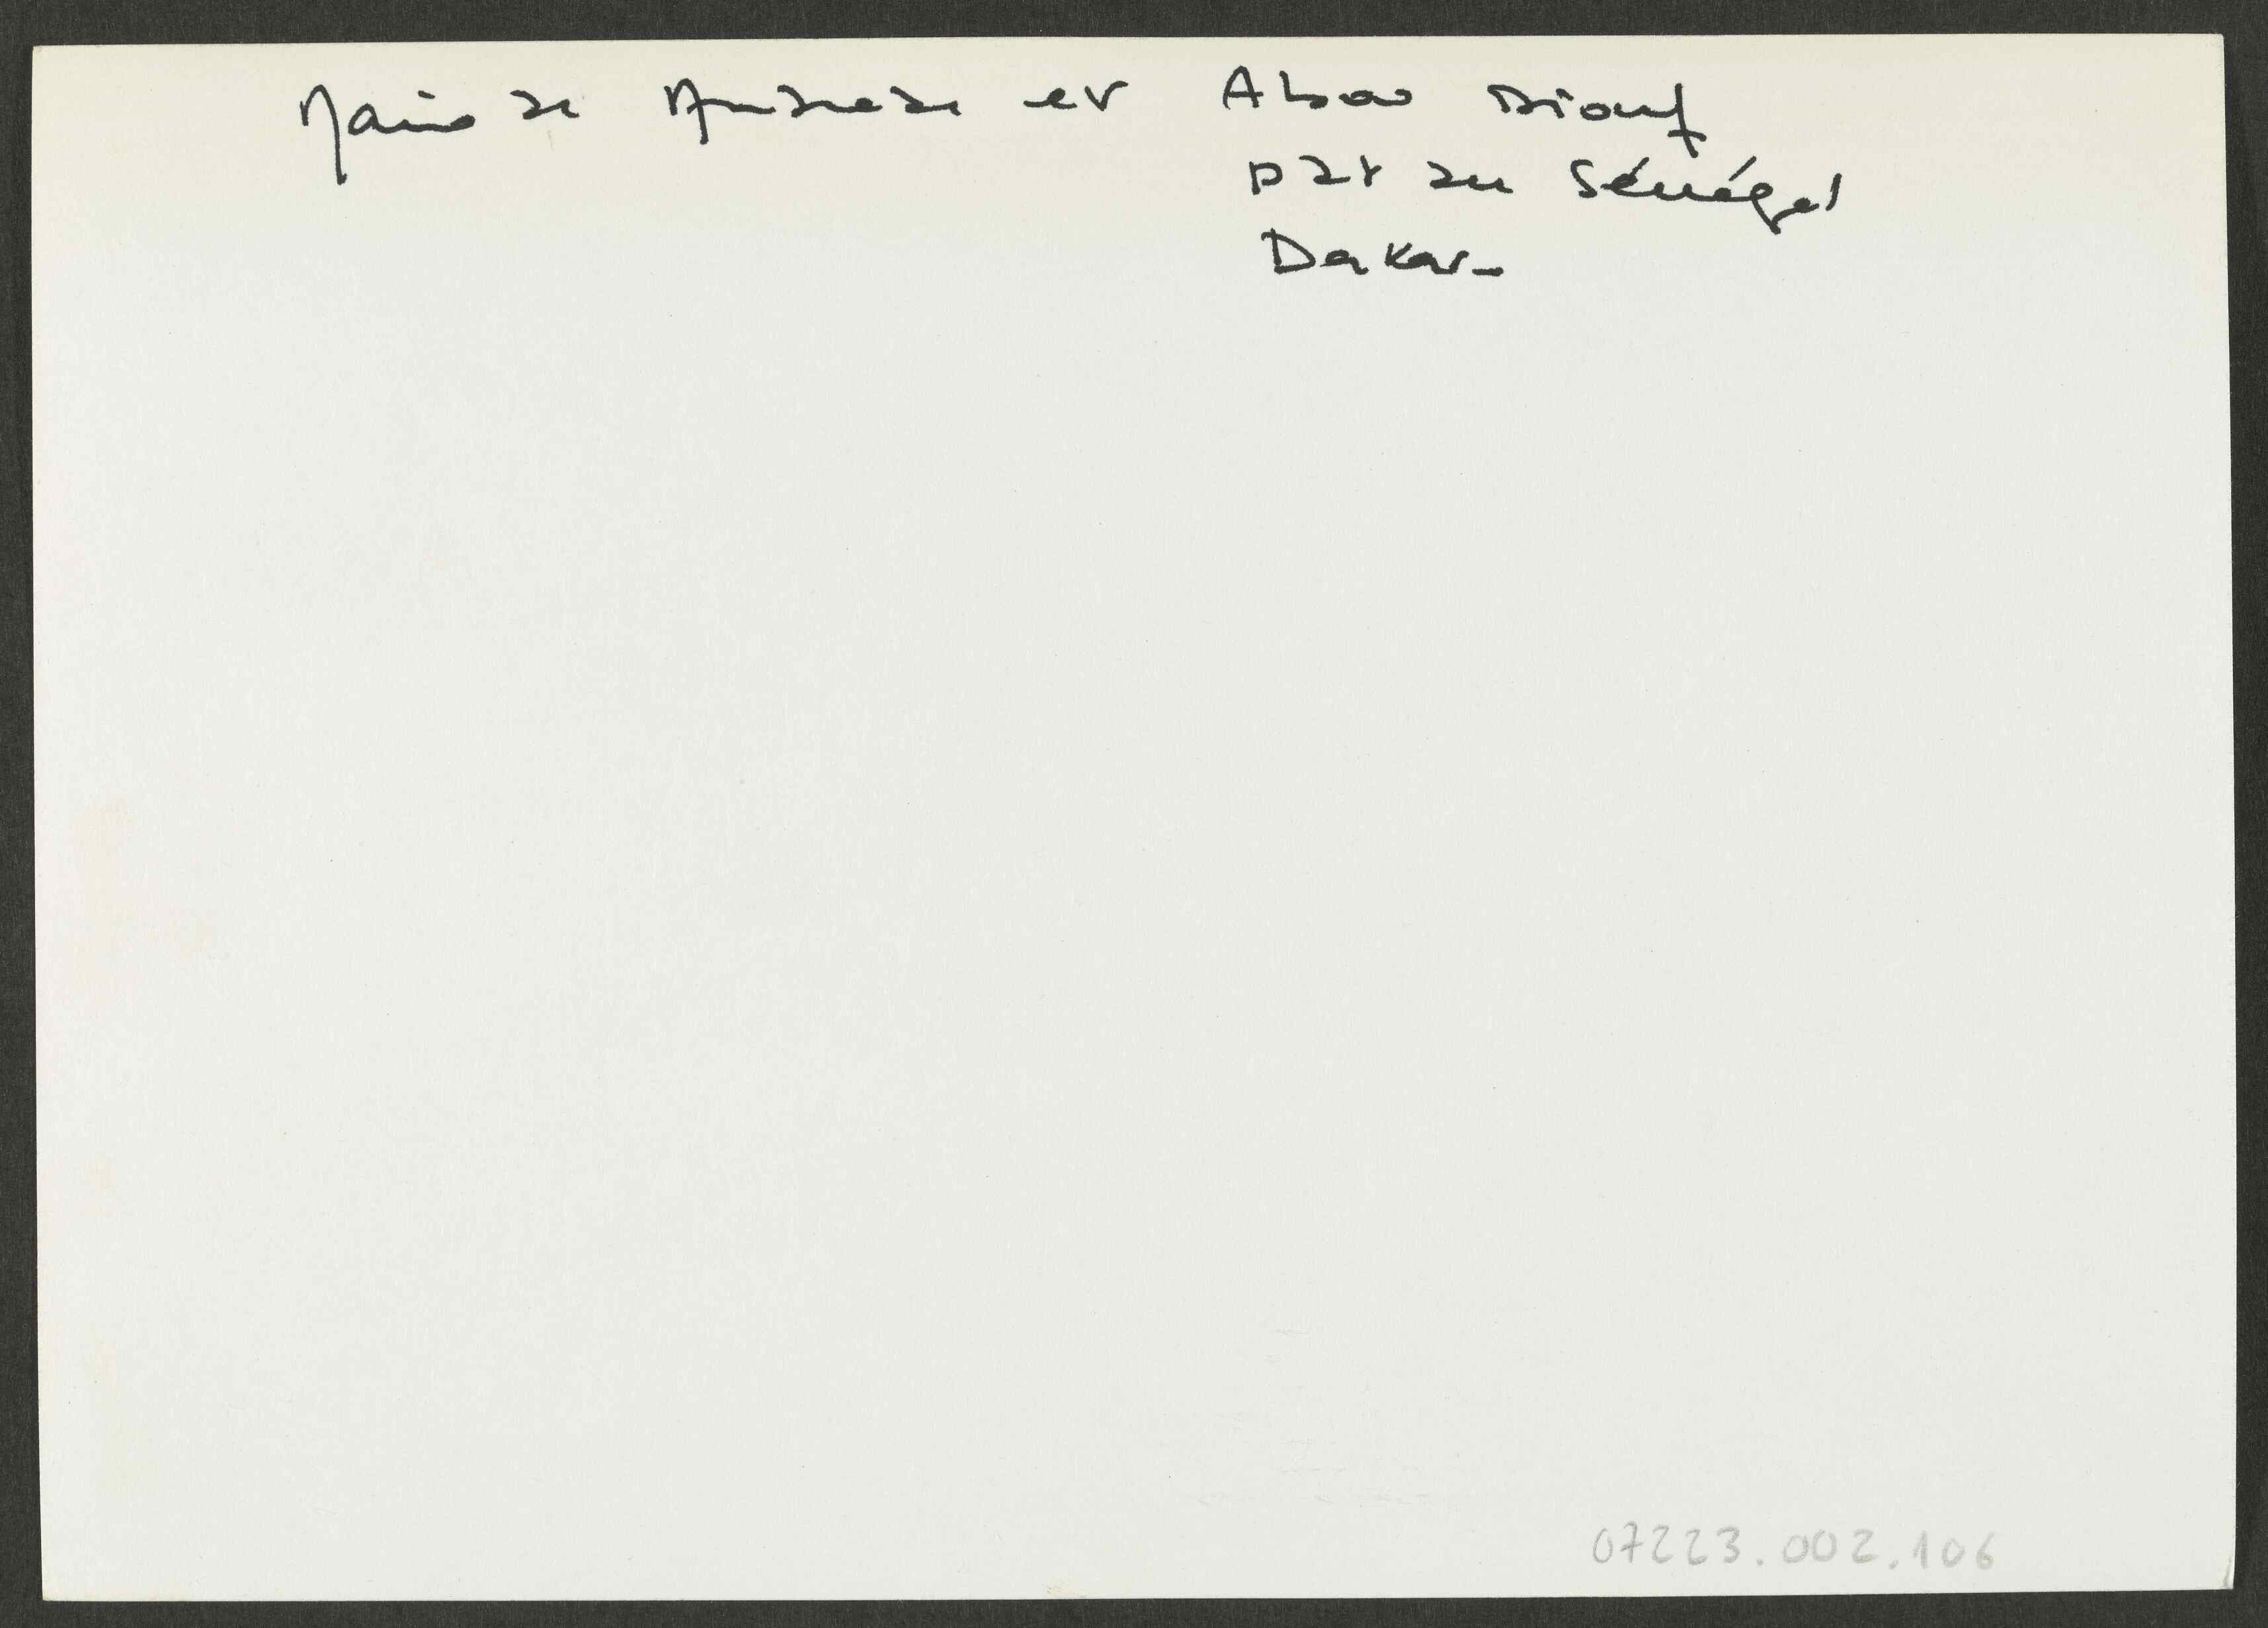 Mario de Andrade et Abdou Diouf
pdt du Sénégal
Dakar-
07223.002.106